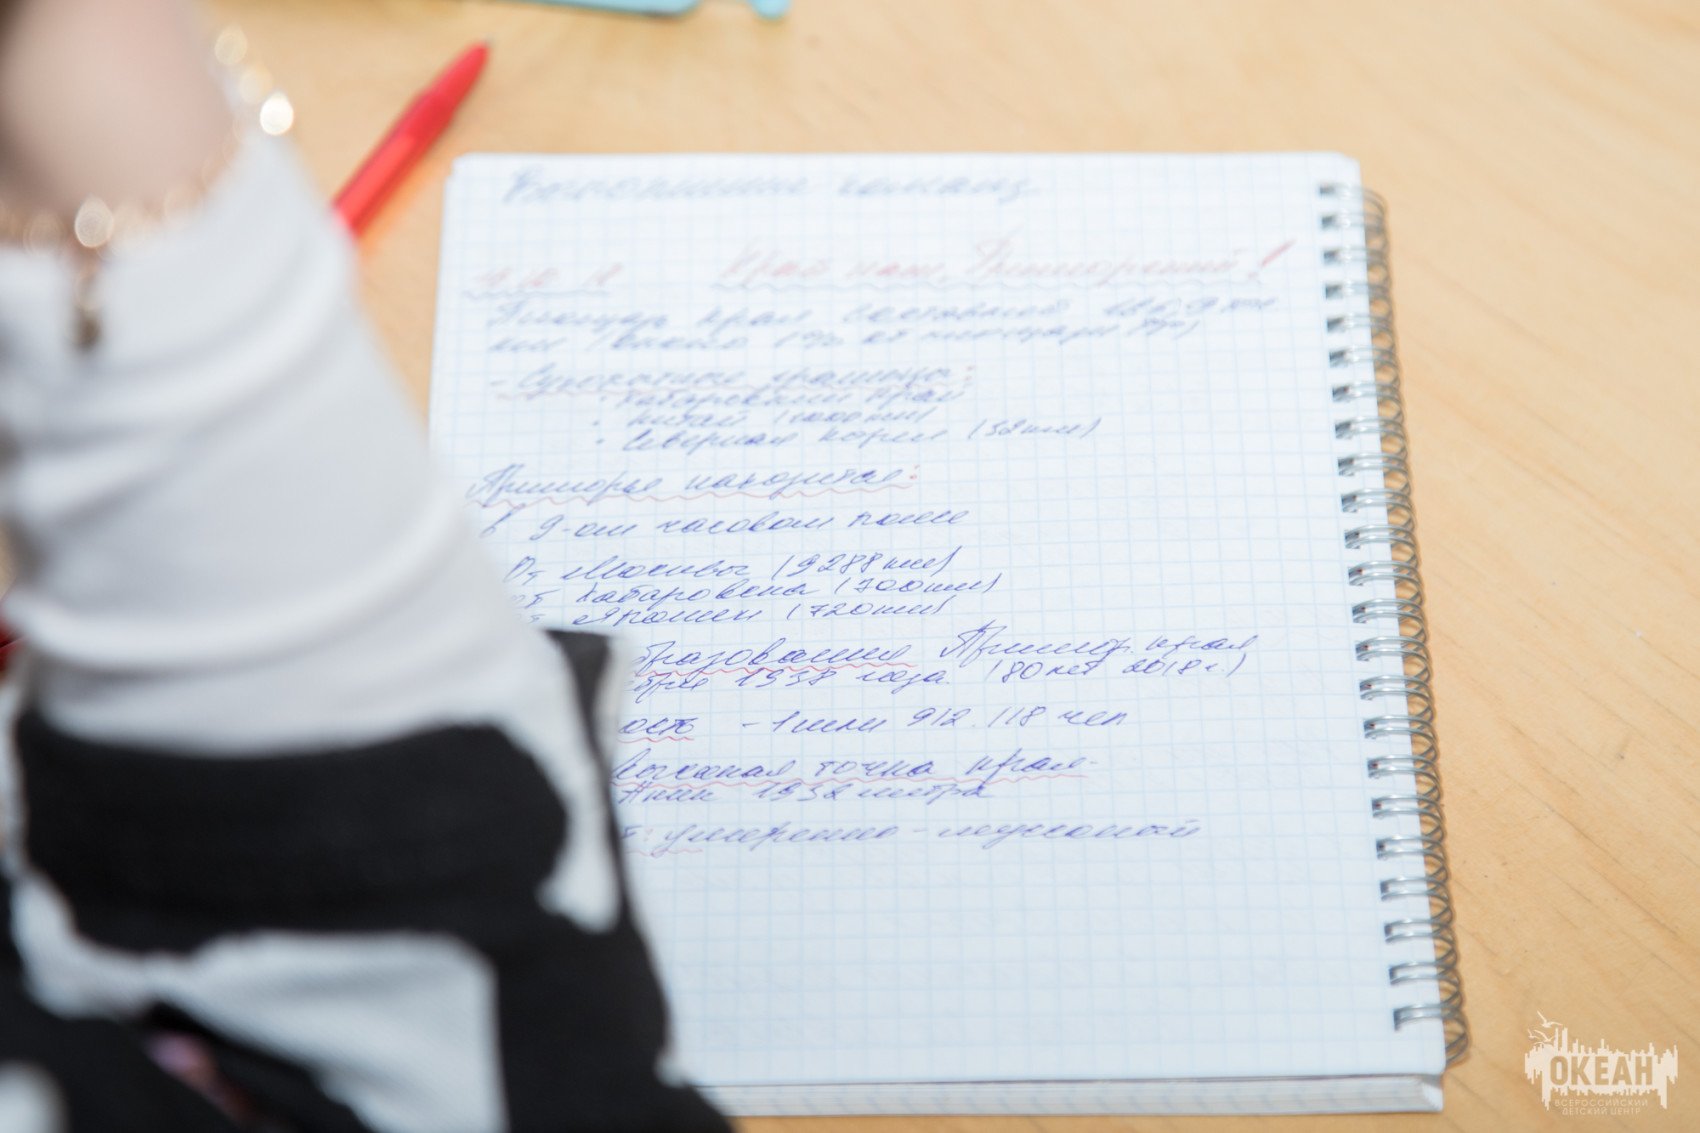 Край наш, Приморский!
Площадь края составляет
- Сухопутные границы:
· Хабаровский край
· Китай (1000 км)
· Северная Корея (32 км)
Приморье находится:
в 9-ом часовом поясе
От Москвы (9288 км)
от Хабаровска (700 км)
от Японии (720 км)
бразования Примор. края
ября 1938 года. (80 лет 2018 г.)
ость - 1 млн 912.118 чел
высокая точка края-
Аник 1932 метра
т: умеренно-муссонный
ОКЕАН
ВСЕРОССИЙСКИЙ
ДЕТСКИЙ ЦЕНТР